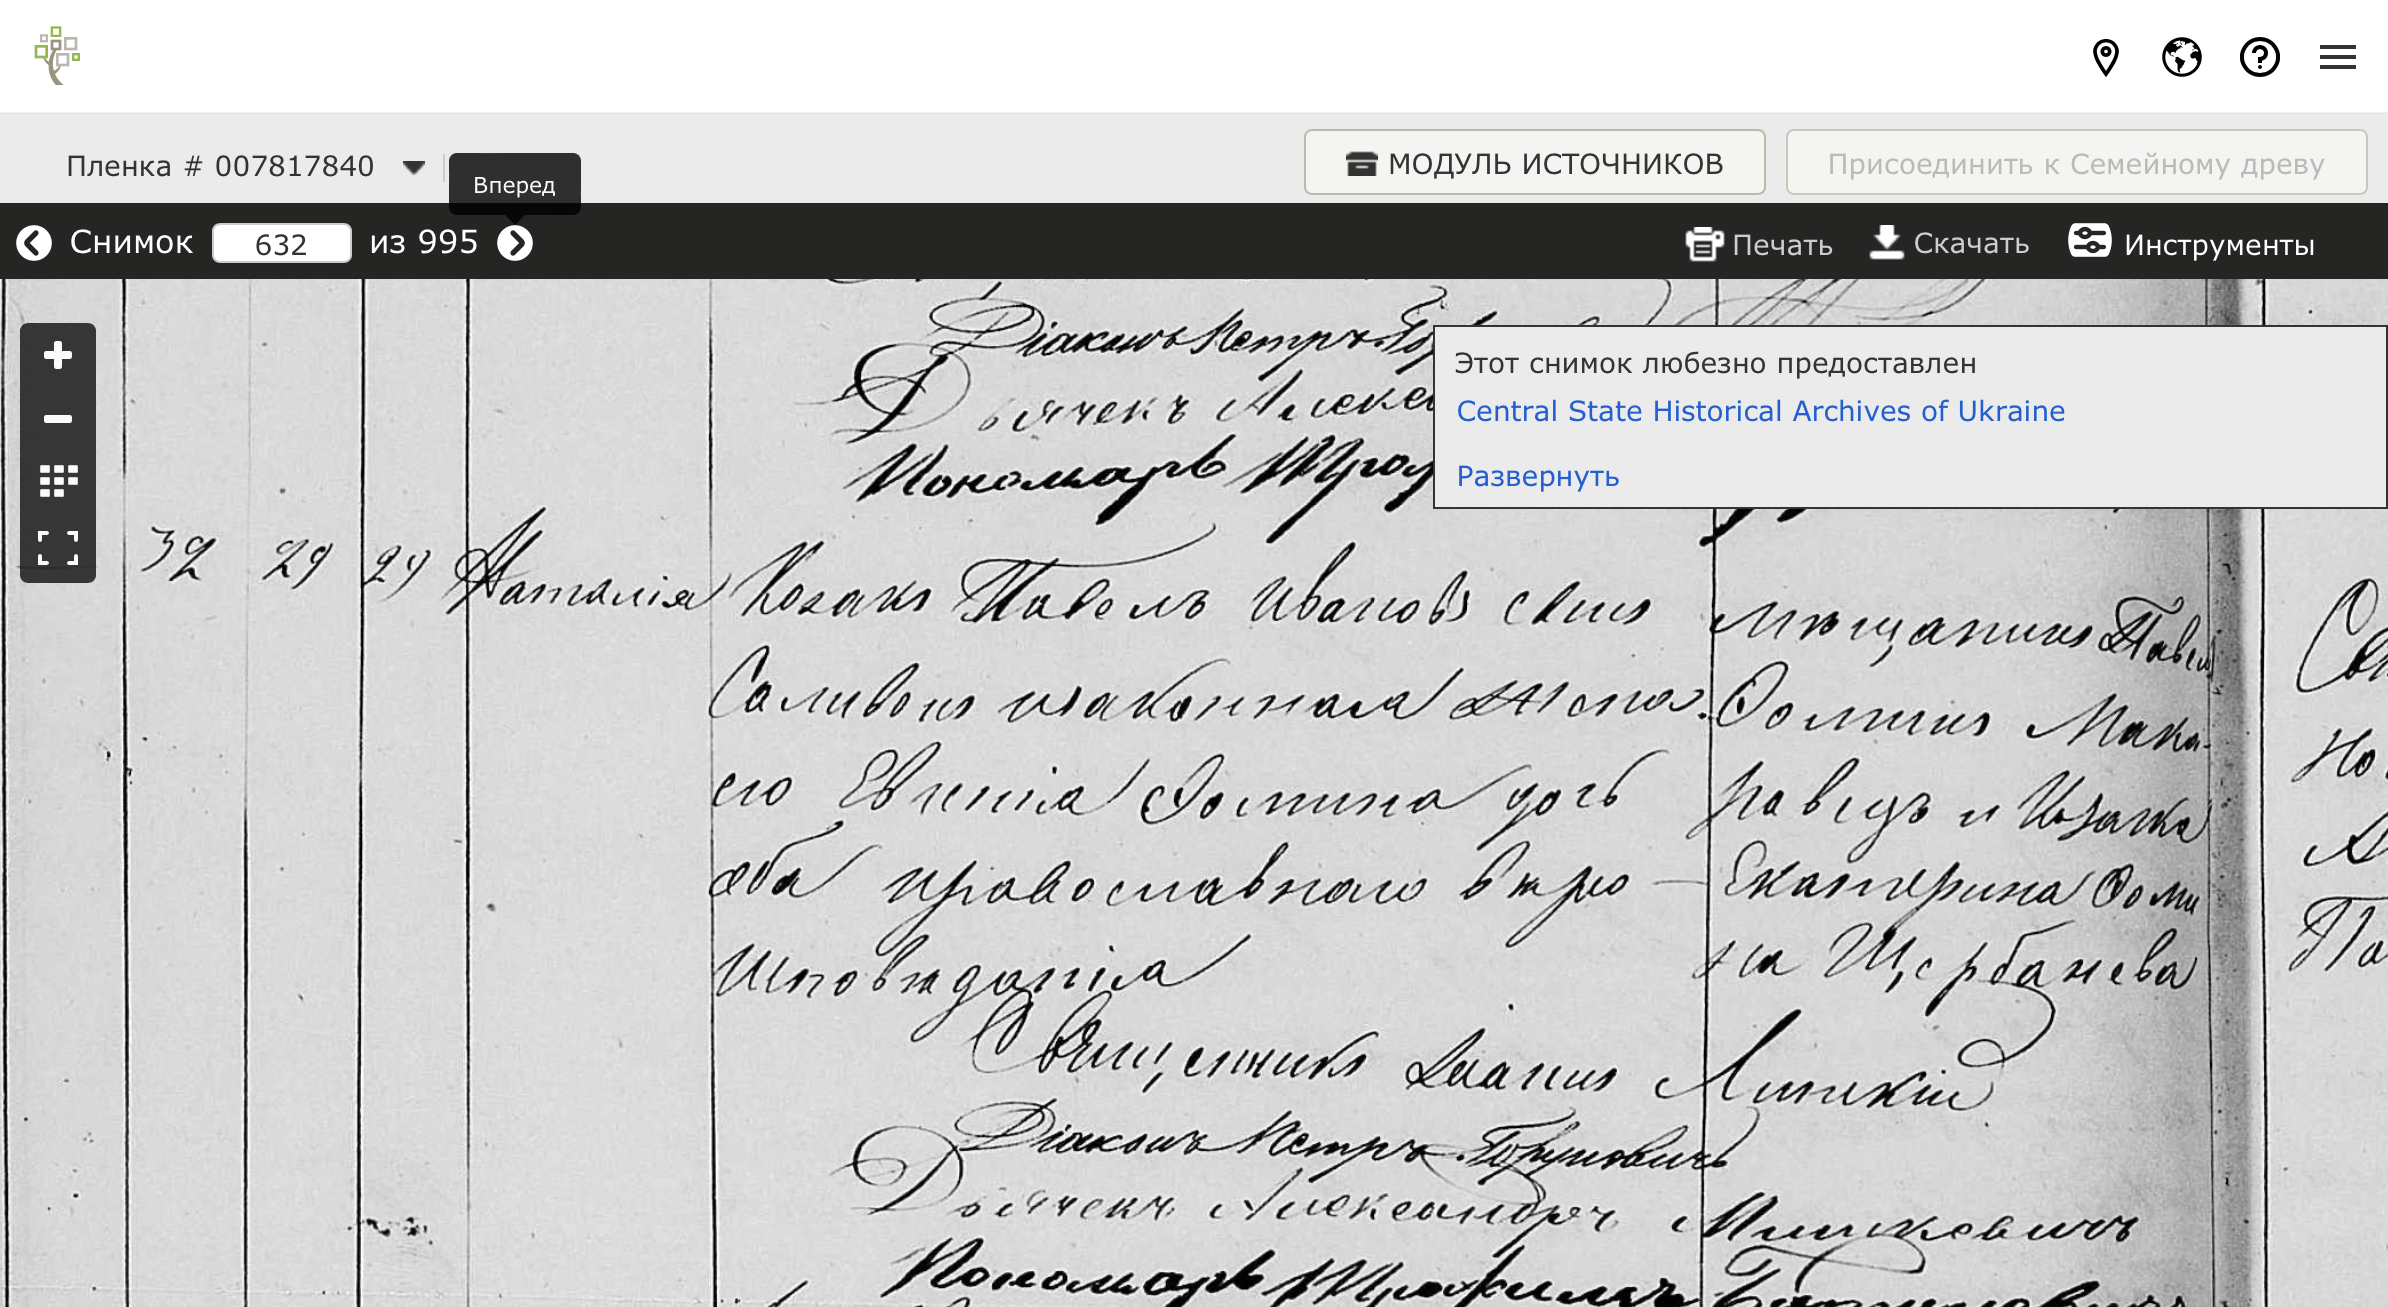 Пленка # 007817840
Вперед
МОДУЛЬ ИСТОЧНИКОВ
Присоединить к Семейному древу
Снимок 632 из 995
Печать
Скачать
Инструменты
Этот снимок любезно предоставлен
Central State Historical Archives of Ukraine
Развернуть
Діаконъ Петръ
Дьячекъ Алекса
Пономарь
32 29 29 Наталія
Козакъ Павелъ Ивановъ сынъ
Саливонъ изаконная жена
его Евгенія Фомина дочь
оба православнаго вѣро
исповѣданія
мѣщанинъ Павелъ
Фоминъ Мака-
равецъ и Козачка
Екатерина Фоми
на Щербанева
Священникъ Іоаннъ Липскій
Діаконъ Петръ Горуновичъ
Дьячекъ Александръ Мишкевичъ
Пономарь
Но
Па